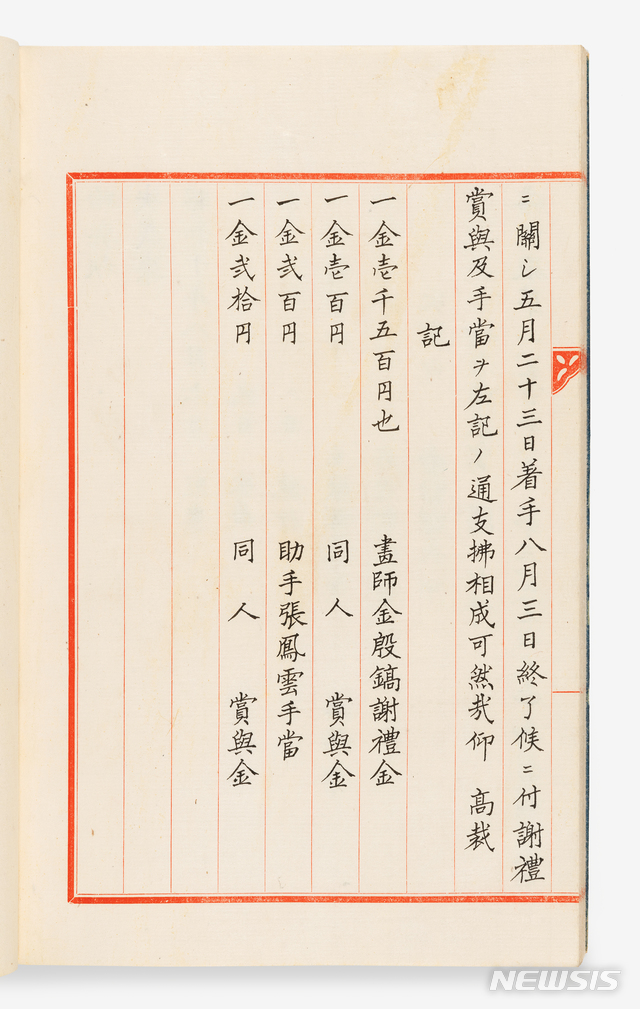 ニ關シ五月二十三日著手八月三日終了候ニ付謝禮
賞與及手當ヲ左記ノ通支拂相成可然哉仰 高裁
記
一金壱千五百円也 畫師金殷鎬謝禮金
一金壱百円 同人 賞與金
一金弐百円 助手張鳳雲手當
一金弐拾円 同人 賞與金
NEWSIS